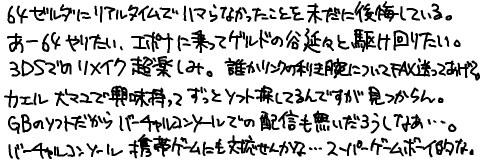 64ゼルダにリアルタイムでハマらなかったことを未だに後悔している。
あー64やりたい、エポナに乗ってゲルドの谷延々と駆け回りたい。
3DSでのリメイク超楽しみ。誰かリンクの利き腕についてFAX送ってあげて。
カエル 大マユで興味持って ずっとソフト探してるんですが見つからん。
GBのソフトだから バーチャルコンソールでの配信も無いだろうしなあ…。
バーチャルコンソール 携帯ゲームにも対応せんかな… スーパーゲームボーイ的な。